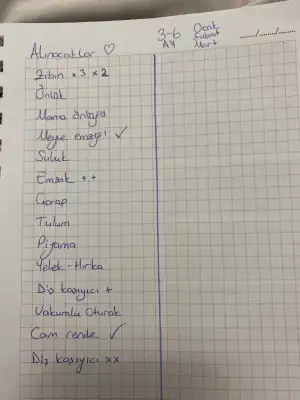 Alınacaklar ♡
3-6 AY
Ocak
Şubat
Mart
...../...../.....
Zıbın x3 x2
Önlük
Mama önlüğü
Meyve emziği ✓
Suluk
Emzik + +
Çorap
Tulum
Pijama
Yelek - Hırka
Diş kaşıyıcı +
Vakumlu Oturak
Cam rende ✓
Diş kaşıyıcı xx